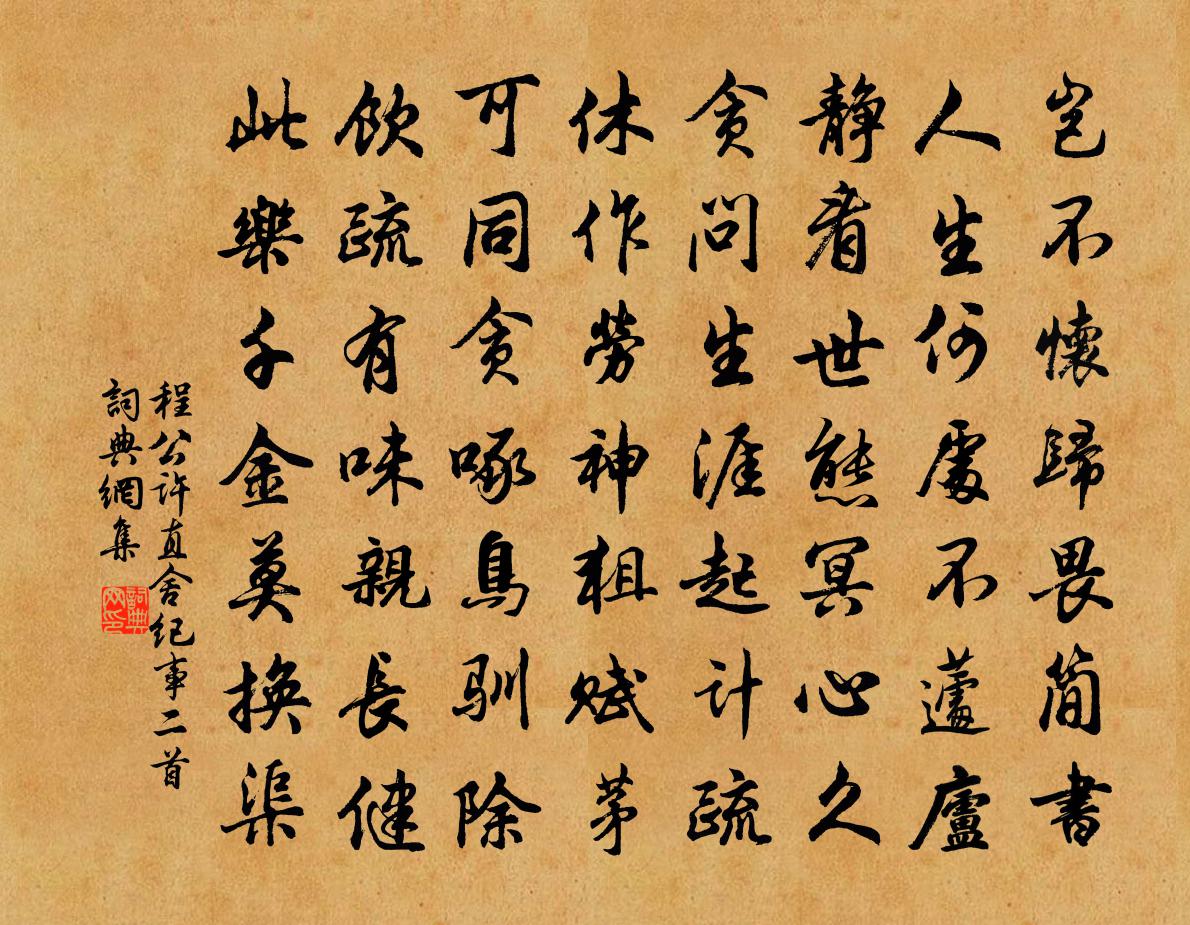 豈不懷歸畏簡書
人生何處不蘧廬
靜看世態冥心久
貪問生涯起計疏
休作勞神狙賦茅
可同貪啄鳥馴除
飲疏有味親長健
此樂千金莫換渠
程公許直舍紀事二首
詞典網集
詞典
网印